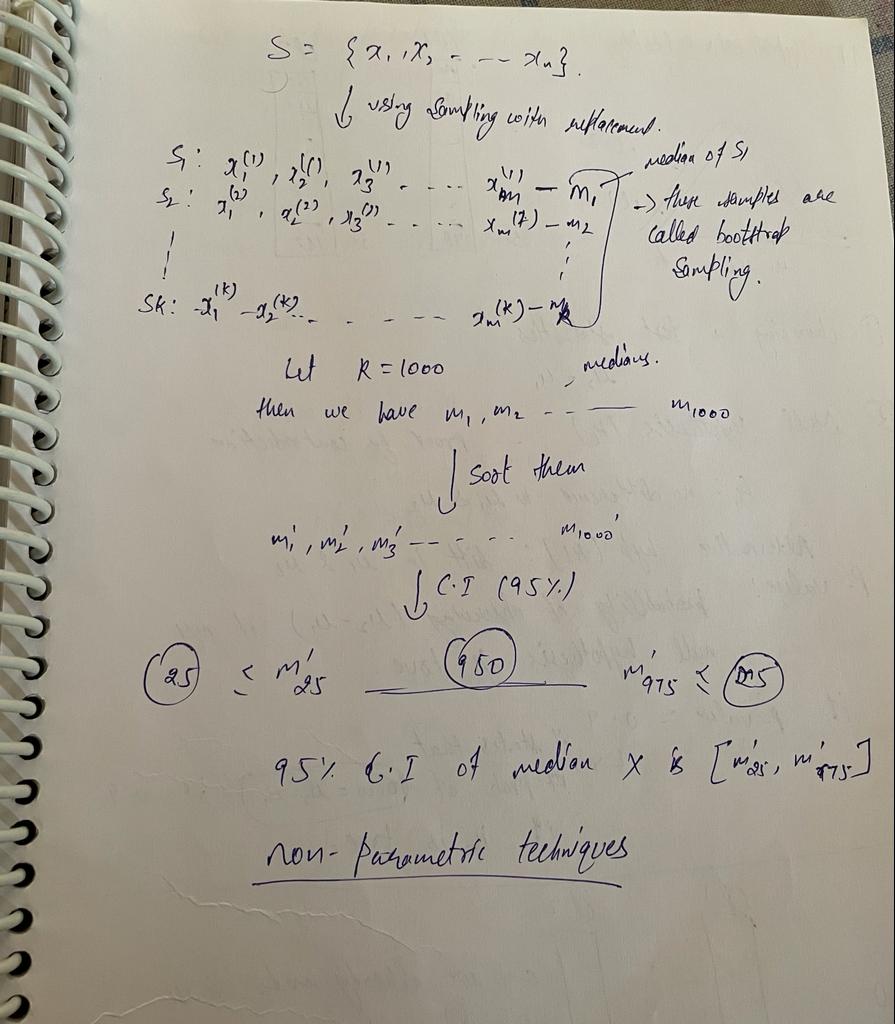 S = {x₁, x₂ - -- xₙ}.
↓ using sampling with replacement.
S₁: x₁⁽¹⁾, x₂⁽¹⁾, x₃⁽¹⁾ . . . . xₘ⁽¹⁾ — m₁ median of S₁
S₂: x₁⁽²⁾, x₂⁽²⁾, x₃⁽²⁾ . . . . xₘ⁽²⁾ — m₂ → these samples are
called bootstrap
sampling.
Sk: x₁⁽ᵏ⁾ - x₂⁽ᵏ⁾ . . . - -- xₘ⁽ᵏ⁾ — mₖ
Let K = 1000 , medians.
then we have m₁, m₂ - - — m₁₀₀₀
↓ Sort them
m₁', m₂', m₃' -- - . . . m₁₀₀₀'
↓ C.I (95%)
25 ≤ m'₂₅ — 950 — m'₉₇₅ ≤ 25
95% C.I of median X is [m'₂₅, m'₉₇₅]
non-parametric techniques